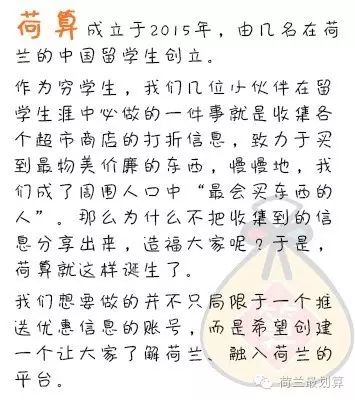 荷算成立于2015年，由几名在荷
兰的中国留学生创立。
作为穷学生，我们几位小伙伴在留
学生涯中必做的一件事就是收集各
个超市商店的打折信息，致力于买
到最物美价廉的东西，慢慢地，我
们成了周围人口中“最会买东西的
人”。那么为什么不把收集到的信
息分享出来，造福大家呢？于是，
荷算就这样诞生了。
我们想要做的并不只局限于一个推
送优惠信息的账号，而是希望创建
一个让大家了解荷兰、融入荷兰的
平台。
荷兰最划算